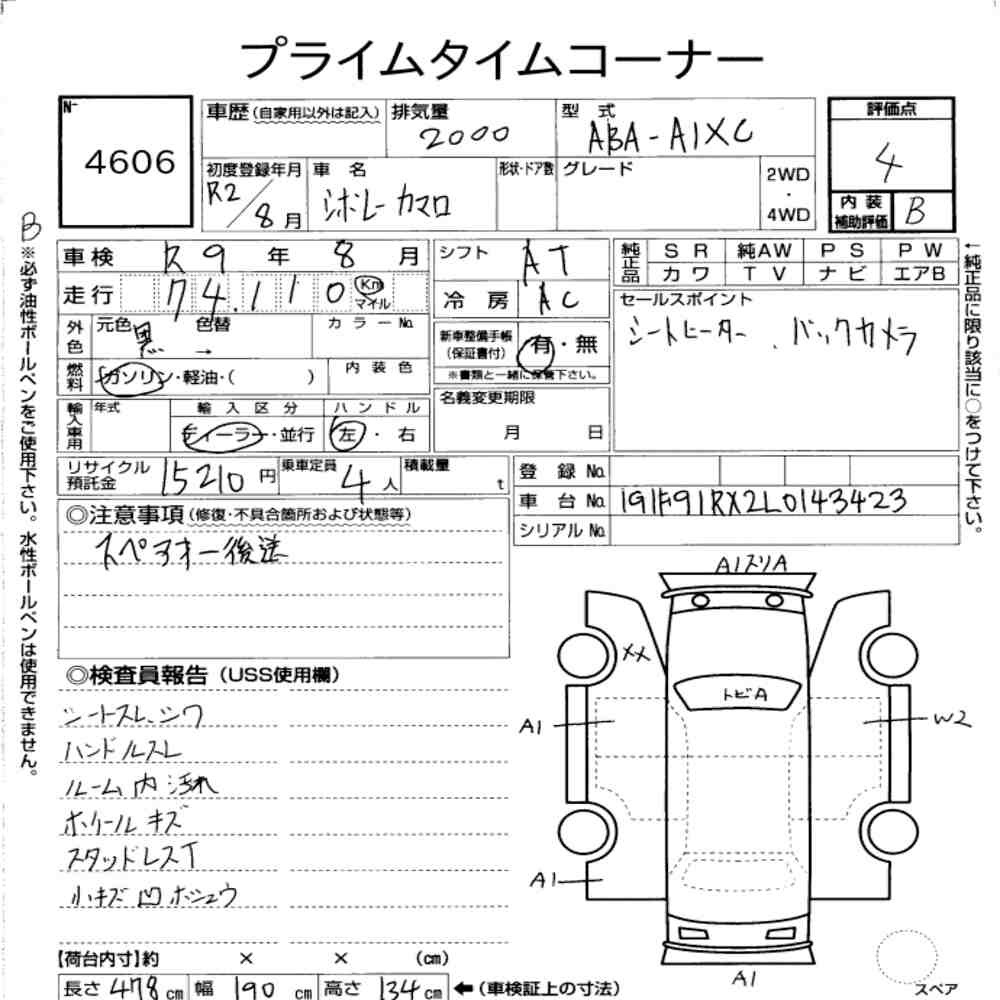 プライムタイムコーナー
No
4606
車歴 (自家用以外は記入)
排気量
2000
型 式
ABA-A1XC
評価点
4
初度登録年月
R2/8月
車 名
シボレーカマロ
形状・ドア数
グレード
2WD
・
4WD
内 装
補助評価
B
B
※必ず油性ボールペンをご使用下さい。水性ボールペンは使用できません。
車検 R9年8月
シフト AT
純正品
SR 純AW PS PW
カワ TV ナビ エアB
走行 74,110 Km
マイル
冷 房 AC
セールスポイント
シートヒーター、バックカメラ
←純正品に限り該当に○をつけて下さい。
外色
元色 黒 色替 →
カラーNo.
新車整備手帳
(保証書付)
有・無
※書類と一緒に保管下さい。
燃料
ガソリン・軽油・( )
内 装 色
名義変更期限
月 日
輸入車用
年式
輸 入 区 分
ディーラー・並行
ハ ン ド ル
左・右
リサイクル
預託金
15210円
乗車定員
4人
積載量
t
登 録 No.
車 台 No. 1G1F91RX2L0143423
シリアル No.
◎注意事項 (修復・不具合箇所および状態等)
スペアキー後送
◎検査員報告 (USS使用欄)
シートスレ、シワ
ハンドルスレ
ルーム内汚れ
ホイールキズ
スタッドレスT
小キズ凹ホシュウ
A1スリA
XX
トビA
A1
W2
A1
A1
スペア
【荷台内寸】約 × × (cm)
長さ 478 cm 幅 190 cm 高さ 134 cm ←(車検証上の寸法)